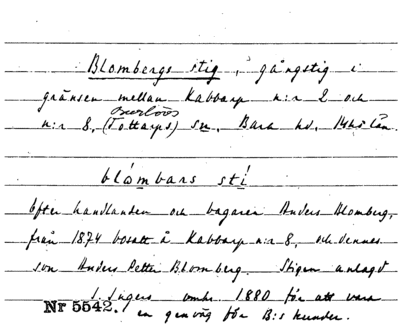 Blombergs stig, gångstig i
gränsen mellan Kabbarp n:r 2 och
Burlövs
n:r 8, (Tottarps) sn, Bara hd, Mhs län.
blómbans stí
Efter handlanden och bagaren Anders Blomberg,
från 1874 bosatt å Kabbarp n:r 8, och dennes
son Anders Petter Blomberg. Stigen anlagd
omkr. 1880 för att vara
Nr 5542.
en genväg för B:s kunder.